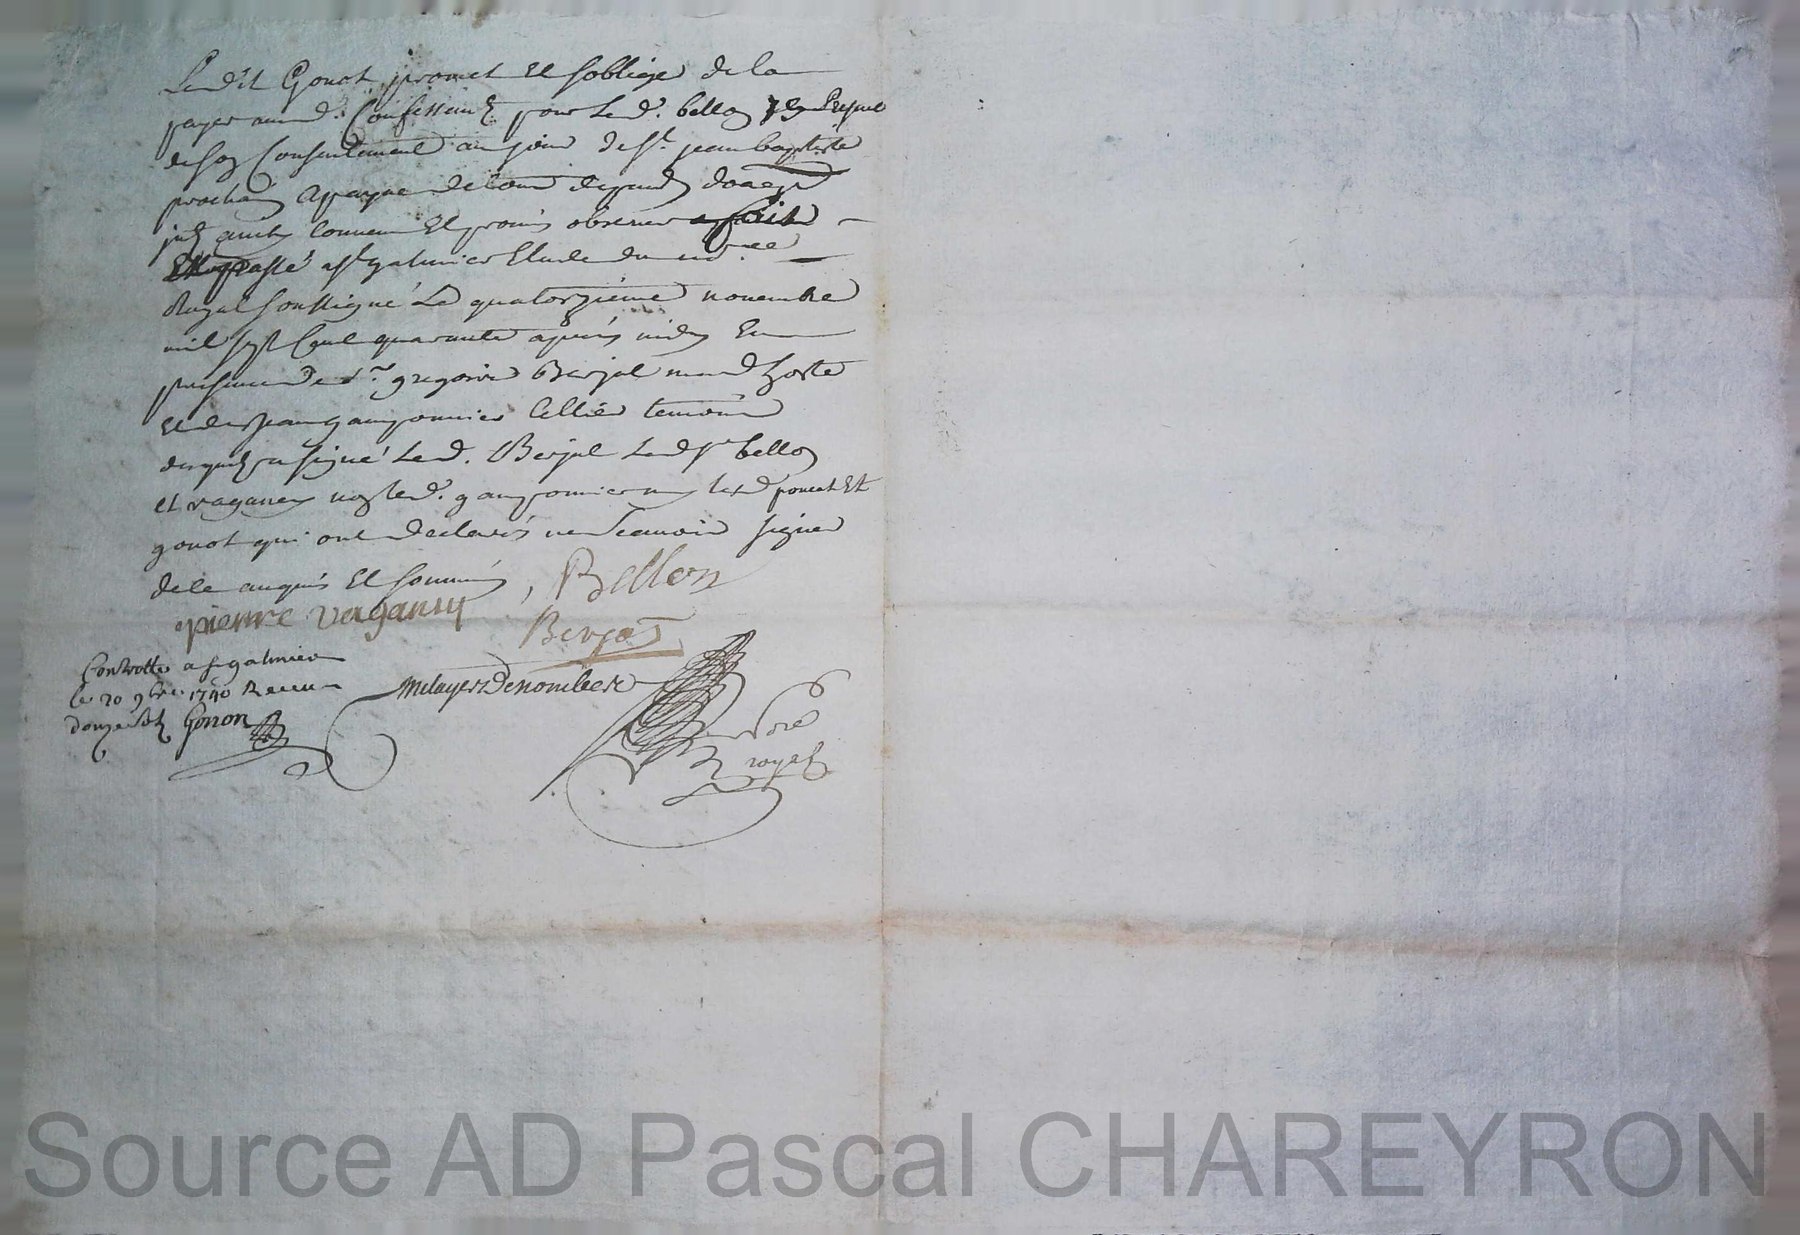 Ledit Gonot promet Et soblige de la
payer aud. Confessent pour Led. bellon
de son Consentement au jour de st. jean baptiste
prochain a peyne de tous depends
convenu Et promis observer fait
Et passé a st galmier Etude du no.re
Royal soussigné Le quatorzieme novembre
mil sept Cent quarante apres midy En
presence de sr. gregoire Berjat md hoste
et de jean gauyonnier Cellier temoins
desquels a signé Led. Berjat Led sr bellon
et vaganey non led. gauyonnier ny led poncet Et
gonot qui ont declarés ne scavoir signer
de ce enquis Et sommés,
Bellon
pierre vaganey
Berjat
Controllé a st galmier
le 20 9bre 1740 Receu
douze sols Gonon
No.re
royal
Source AD Pascal CHAREYRON